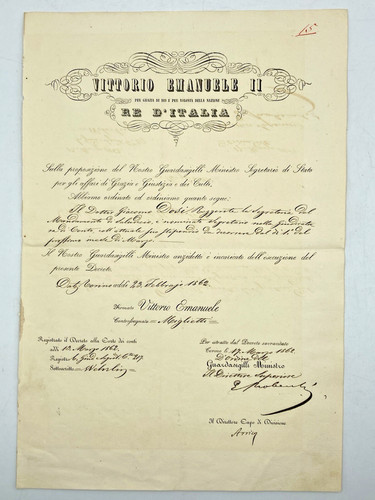 15
VITTORIO EMANUELE II
PER GRAZIA DI DIO E PER VOLONTÀ DELLA NAZIONE
RE D'ITALIA
Sulla proposizione del Nostro Guardasigilli Ministro Segretario di Stato
per gli affari di Grazia e Giustizia e dei Culti,
Abbiamo ordinato ed ordiniamo quanto segue:
Il Dottor Giacomo Reggente la Segreteria del
Mandamento di è nominato Segretario nella Giudicatura
di coll'attuale suo stipendio di decorrere dal dì 1.° del
prossimo mese di Marzo.
Il Nostro Guardasigilli Ministro anzidetto è incaricato dell'esecuzione del
presente Decreto.
Dat. Torino addì 23 Febbrajo 1862
Firmato Vittorio Emanuele
Contrassegnato Miglietti
Registrato il Decreto alla Corte dei conti
addì 12 Marzo 1862
Registro 6
Sottoscritto
Per estratto dal Decreto succitato
Torino, li 17 Marzo 1862
D'ordine del
Guardasigilli Ministro
Il Direttore Superiore
Il Direttore Capo di Divisione